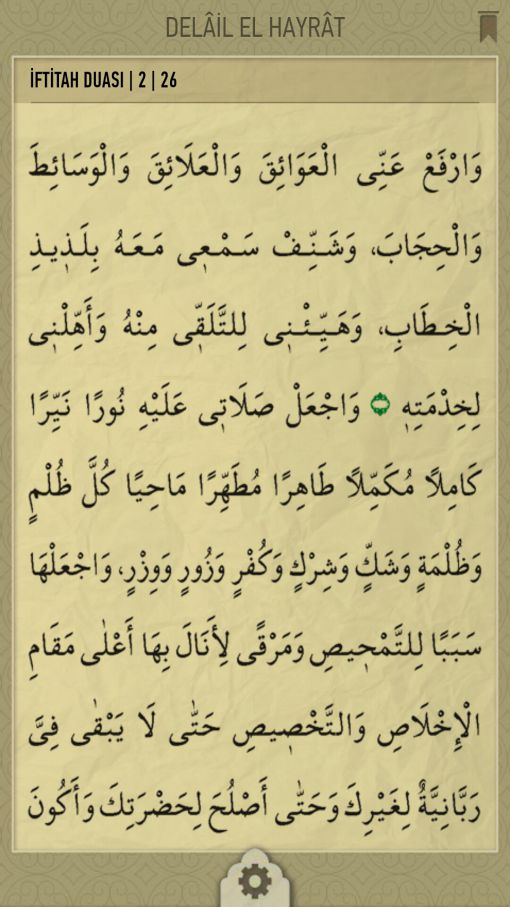 DELÂİL EL HAYRÂT
İFTİTAH DUASI | 2 | 26
وَارْفَعْ عَنِّى الْعَوَائِقَ وَالْعَلَائِقَ وَالْوَسَائِطَ
وَالْحِجَابَ، وَشَنِّفْ سَمْعِى مَعَهُ بِلَذِيذِ
الْخِطَابِ، وَهَيِّئْنِى لِلتَّلَقِّى مِنْهُ وَأَهِّلْنِى
لِخِدْمَتِهِ ۝ وَاجْعَلْ صَلَاتِى عَلَيْهِ نُورًا نَيِّرًا
كَامِلًا مُكَمِّلًا طَاهِرًا مُطَهِّرًا مَاحِيًا كُلَّ ظُلْمٍ
وَظُلْمَةٍ وَشَكٍّ وَشِرْكٍ وَكُفْرٍ وَزُورٍ وَوِزْرٍ، وَاجْعَلْهَا
سَبَبًا لِلتَّمْحِيصِ وَمَرْقًى لِأَنَالَ بِهَا أَعْلٰى مَقَامِ
الْإِخْلَاصِ وَالتَّخْصِيصِ حَتّٰى لَا يَبْقٰى فِىَّ
رَبَّانِيَّةٌ لِغَيْرِكَ وَحَتّٰى أَصْلُحَ لِحَضْرَتِكَ وَأَكُونَ